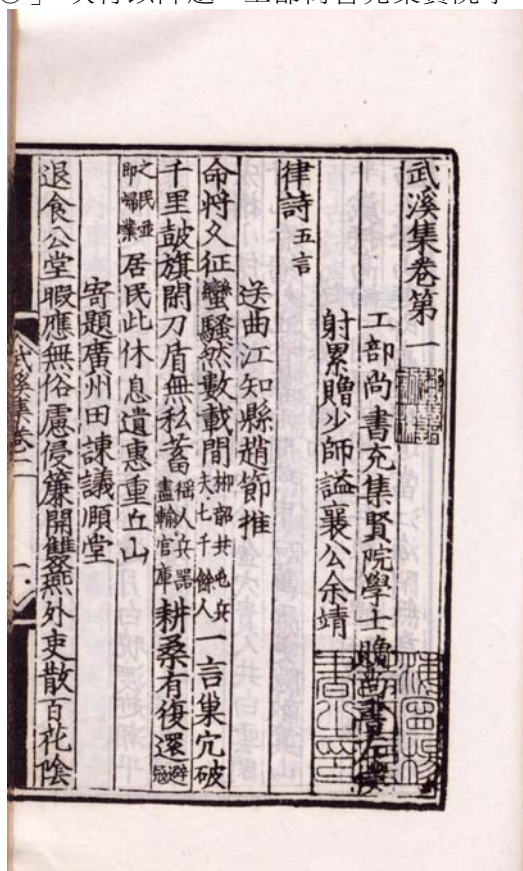 武溪集卷第一
工部尚書充集賢院學士贈尚書左僕
射累贈少師謚襄公余靖
律詩五言
送曲江知縣趙節推
命將久征蠻騷然數載間郴韶共屯兵夫七千餘人一言巢穴破
千里皷旗閑刀盾無私蓄猺人兵器盡輸官庫耕桑有復還避寇
之民並即歸業居民此休息遺惠重丘山
寄題廣州田諫議頤堂
退食公堂暇應無俗慮侵簾開雙燕外吏散百花陰
武溪集卷一